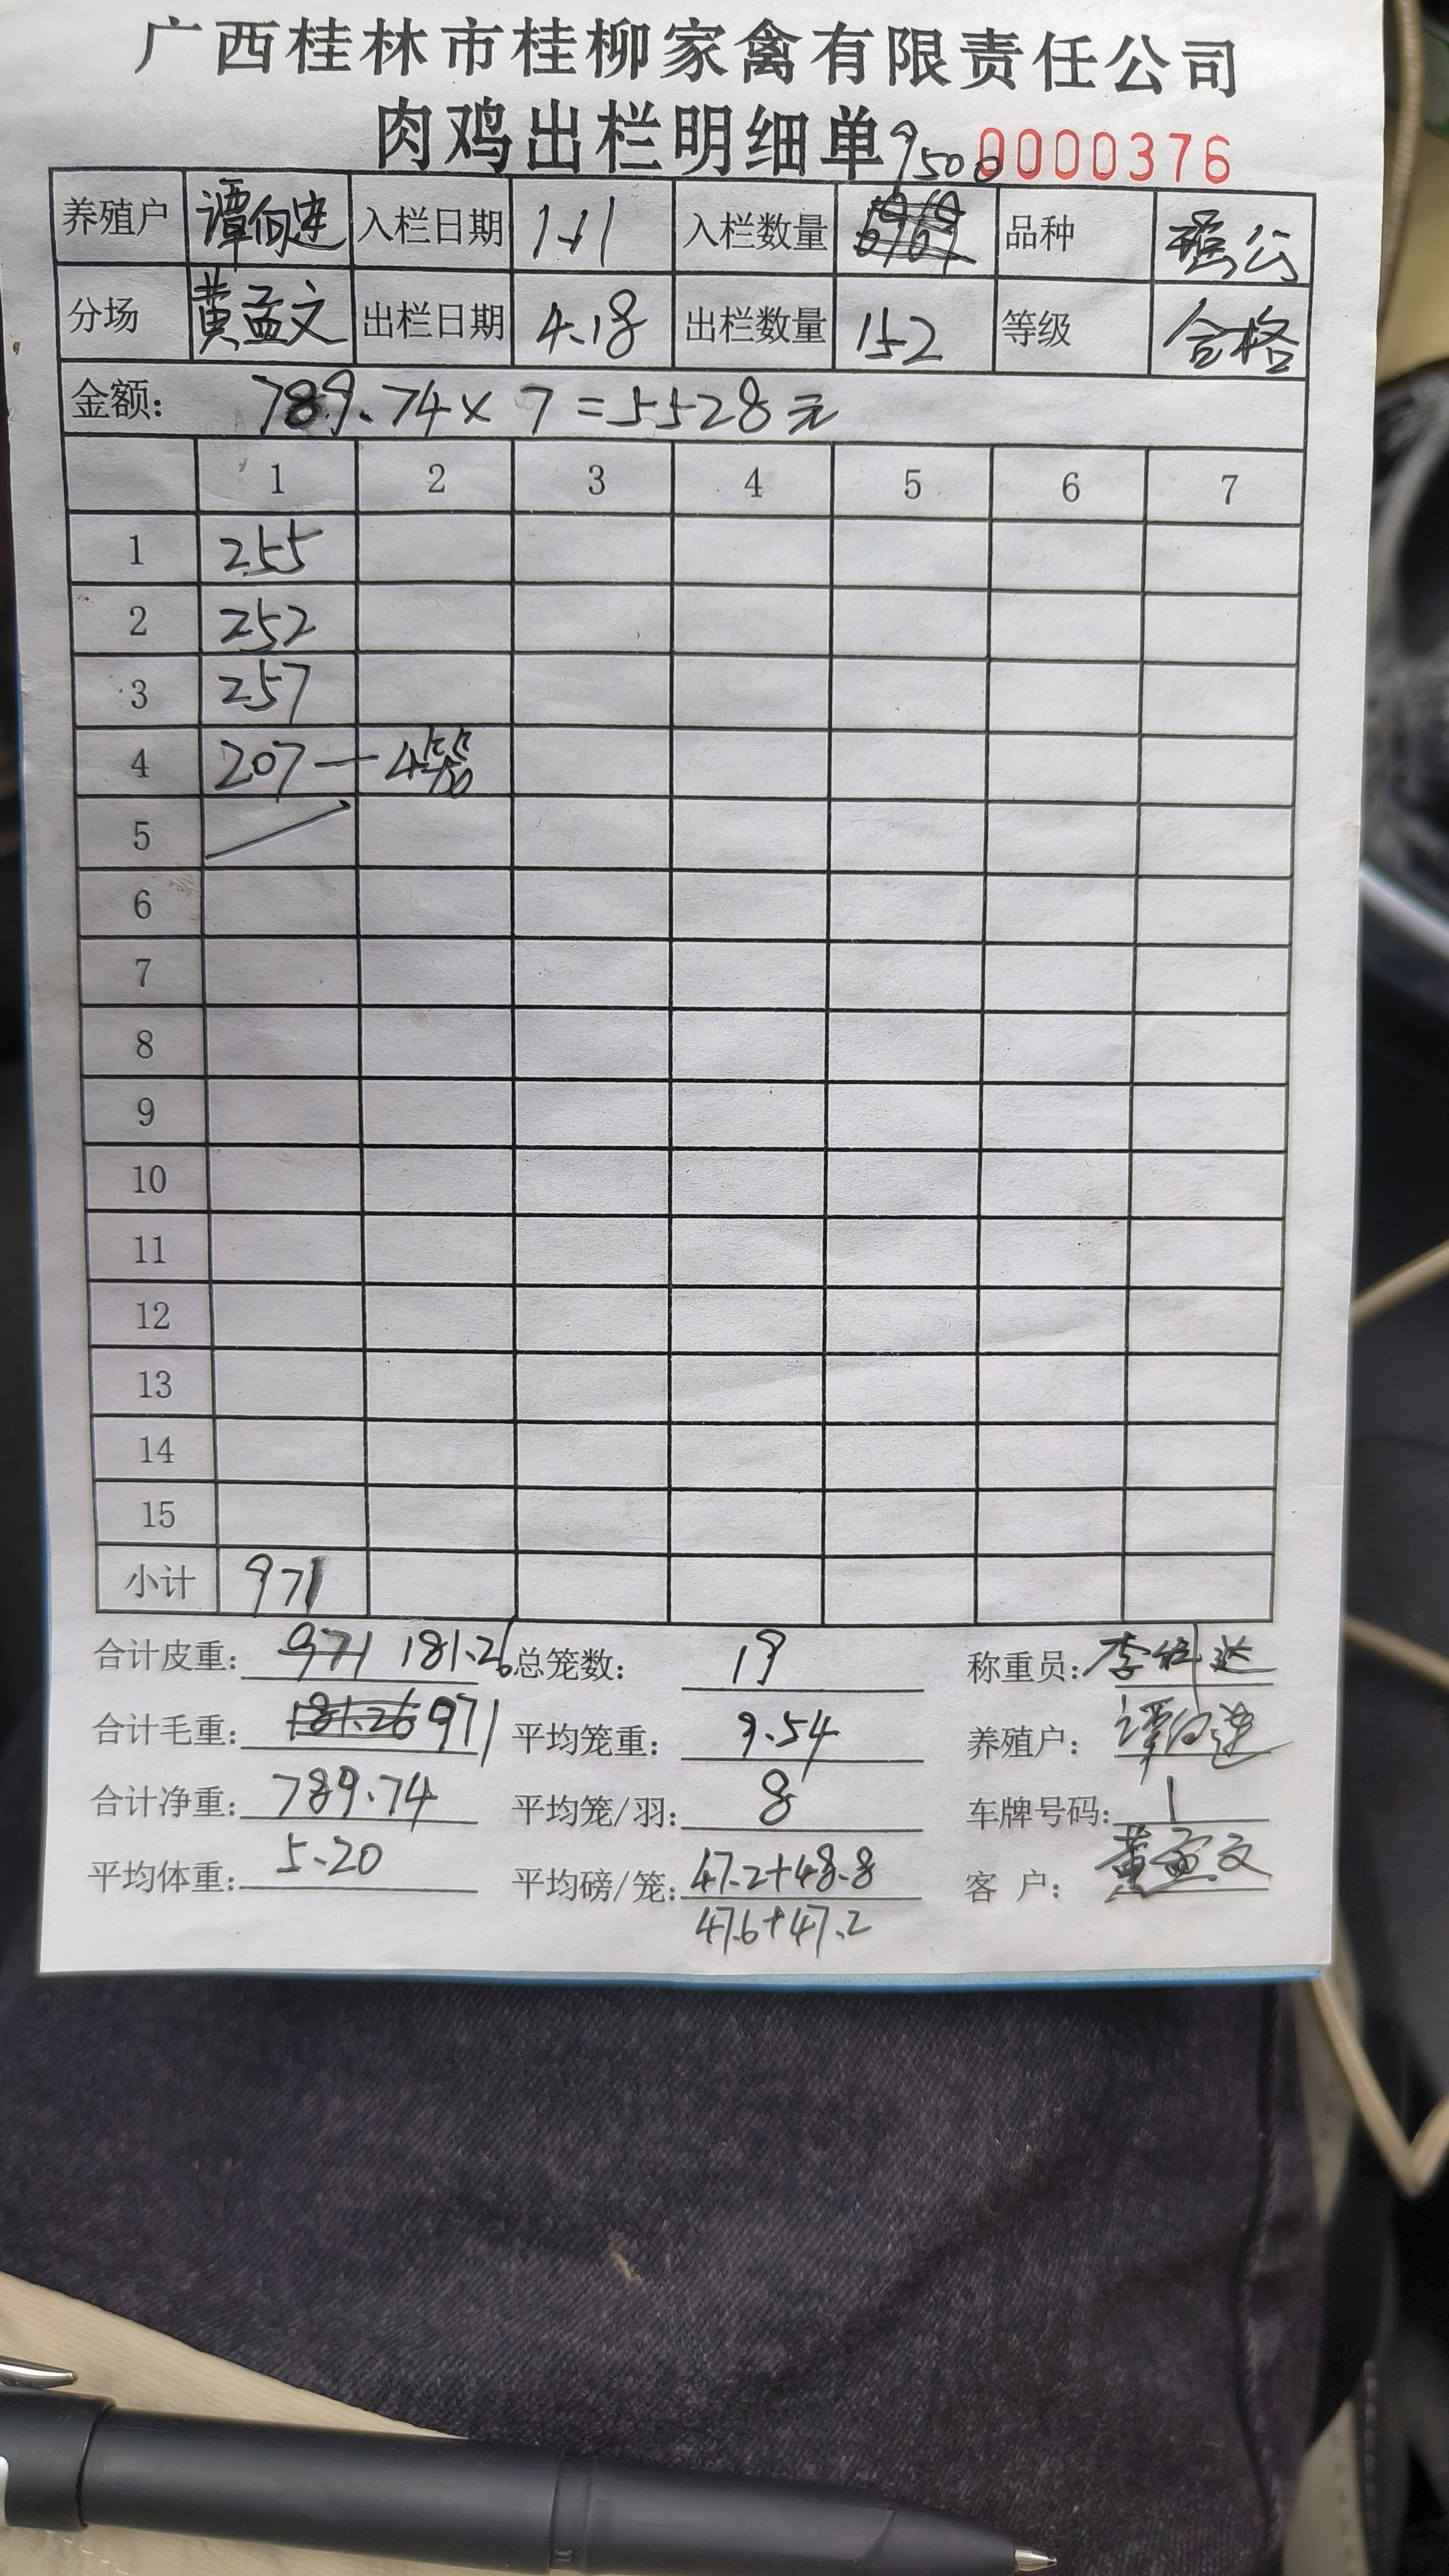 广西桂林市桂柳家禽有限责任公司
肉鸡出栏明细单 0000376
9500
养殖户 谭向进 入栏日期 1.11 入栏数量 品种 瑶公
分场 黄孟文 出栏日期 4.18 出栏数量 152 等级 合格
金额: 789.74×7=5528元
1 2 3 4 5 6 7
1 255
2 252
3 257
4 207—4笼
5
6
7
8
9
10
11
12
13
14
15
小计 971
合计皮重: 971 181.26 总笼数: 19 称重员:
合计毛重: 181.26 971 平均笼重: 9.54 养殖户: 谭向进
合计净重: 789.74 平均笼/羽: 8 车牌号码: 1
平均体重: 5.20 平均磅/笼: 47.2+48.8 客户: 黄孟文
47.6+47.2